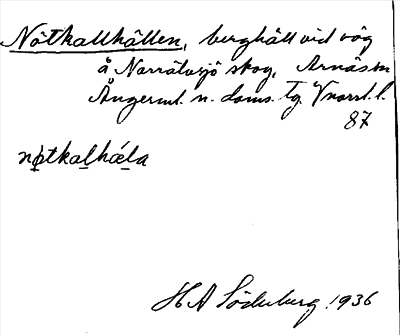 Nötkallhällen, berghäll vid väg
å Norrätusjö skog, Arnäs sn
Ångerml. n. doms. Tg. Vnorrl. l.
87
nøtkalhæla
H A Söderberg 1936